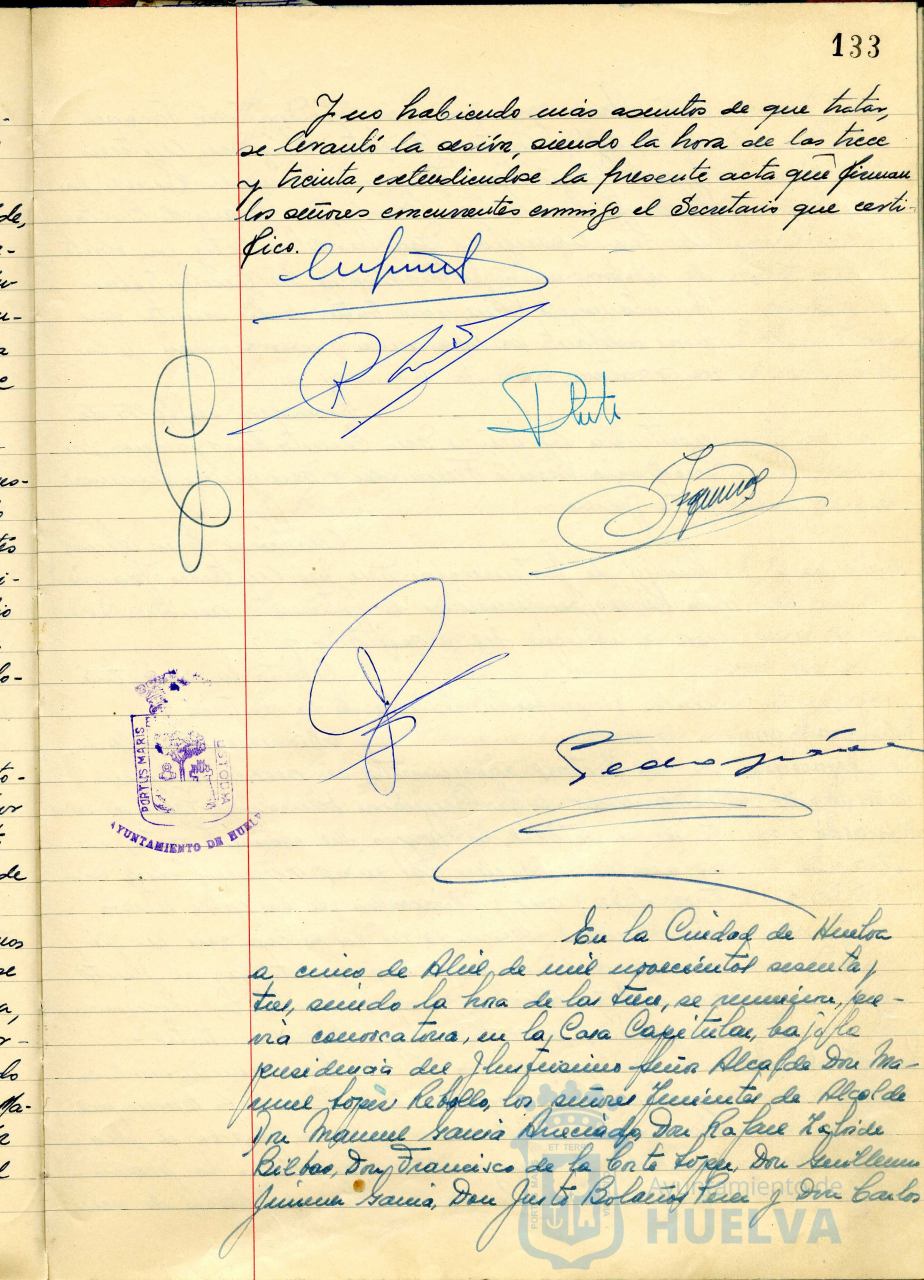 133
Y no habiendo más asuntos de que tratar,
se levantó la sesión, siendo la hora de las trece
y treinta, extendiéndose la presente acta que firman
los señores concurrentes conmigo el Secretario que certi-
fico.
PORTUS MARIS
CUSTODIA
AYUNTAMIENTO DE HUELVA
En la Ciudad de Huelva
a cinco de Abril de mil novecientos sesenta y
tres, siendo la hora de las trece, se reunieron, pre-
via convocatoria, en la Casa Capitular, bajo la
presidencia del Ilustrísimo Señor Alcalde Don Ma-
nuel López Rebollo, los señores Tenientes de Alcalde
Don Manuel García Don Rafael
Bilbao, Don Francisco de la Corte López, Don Guillermo
Jimenez García, Don Justo Bolaños y Don Carlos
Ayuntamiento de
HUELVA